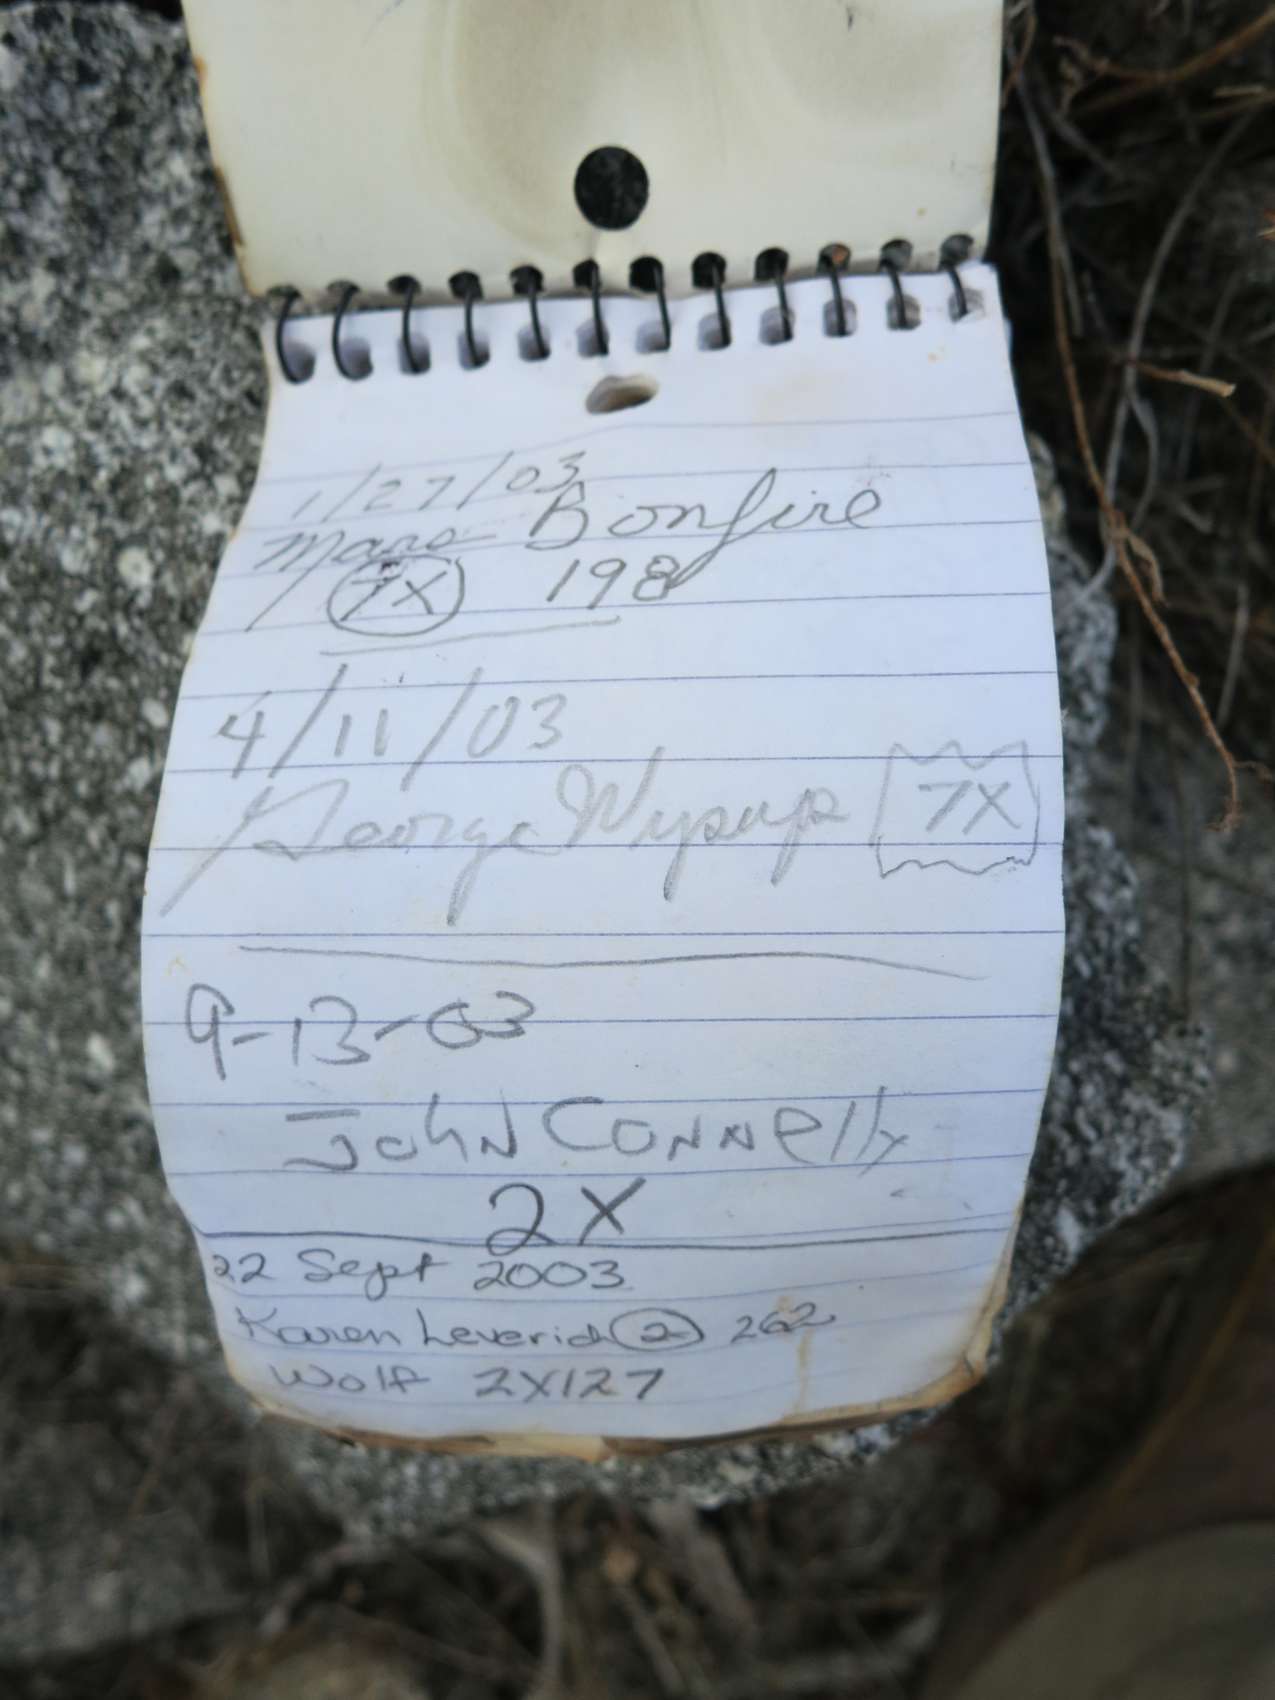 1/27/03
Mars Bonfire
7X 198
4/11/03
George Wysup 7X
9-13-03
John Connelly
2X
22 Sept 2003
Karen Leverich 2 262
Wolf 2X127